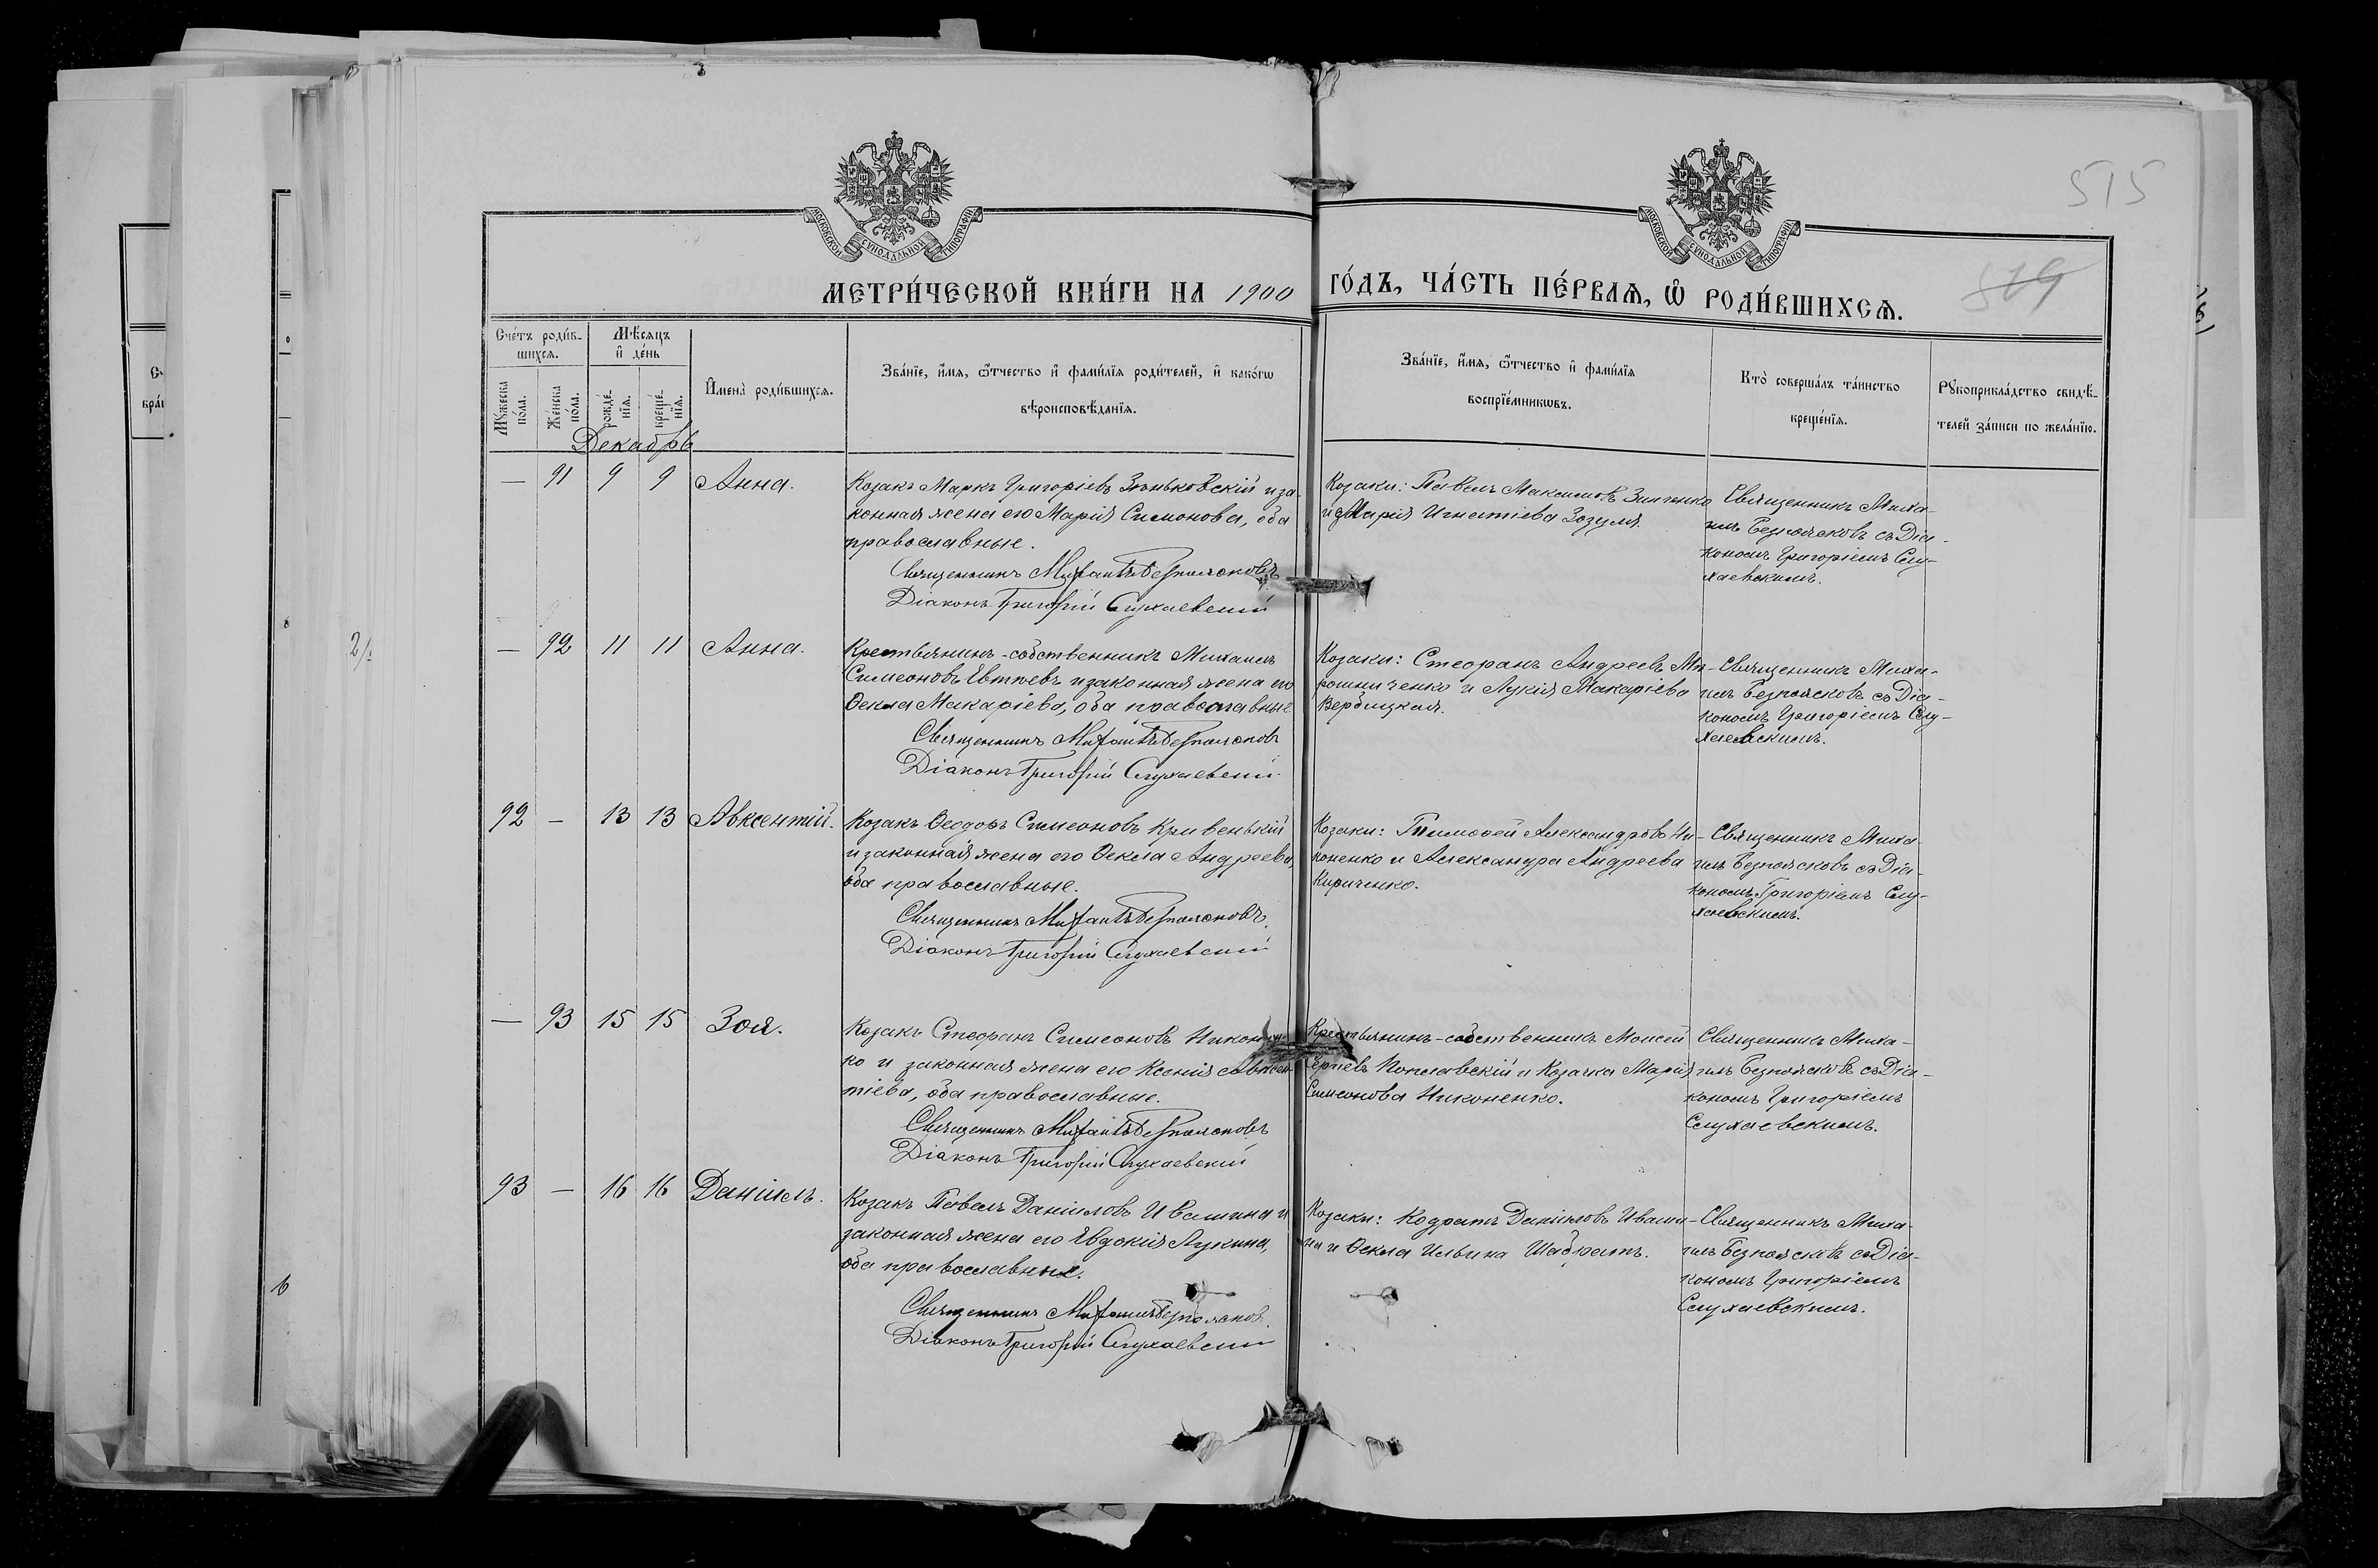 МОСКОВСКОЙ СУНОДАЛЬНОЙ ТИПОГРАФІИ
МОСКОВСКОЙ СУНОДАЛЬНОЙ ТИПОГРАФІИ
515
МЕТРИ́ЧЕСКОЙ КНИ́ГИ НА 1900 ГО́ДЪ, ЧА́СТЬ ПЕ́РВАѦ, Ѿ РОДИ́ВШИХСѦ.
Сче́тъ роди́в-
шихсѧ.
Мѣ́сѧцъ
и҆ де́нь
Мꙋ́жеска
по́ла.
Же́нска
по́ла.
рожде́-
нїѧ.
креще́-
нїѧ.
И҆мена̀ роди́вшихсѧ.
Зва́нїе, и҆́мѧ, ѻ҆́тчество и҆ фами́лїѧ роди́телей, и҆ како́гѡ
вѣроисповѣ́данїѧ.
Зва́нїе, и҆́мѧ, ѻ҆́тчество и҆ фами́лїѧ
воспрїе́мникѡвъ.
Кто̀ соверша́лъ та́инство
креще́нїѧ.
Рꙋкоприкла́дство свидѣ́-
телей за́писи по жела́нїю.
Декабрь
— 91 9 9 Анна.
Козакъ Маркъ Григоріевъ Зѣньковскій и за-
конная жена его Марія Симонова, оба
православные.
Священникъ Михаилъ Безпоясковъ
Діаконъ Григорій Слухаевскій
Козаки: Павелъ Максимовъ Зинченко
и Марія Игнатіева Зозуля.
Священникъ Миха-
илъ Безпоясковъ съ Діа-
кономъ Григоріемъ Слу-
хаевскимъ.
— 92 11 11 Анна.
Крестьянинъ-собственникъ Михаилъ
Симеоновъ Евтѣевъ и законная жена его
Ѳекла Макаріева, оба православные
Священникъ Михаилъ Безпоясковъ
Діаконъ Григорій Слухаевскій.
Козаки: Стефанъ Андреевъ Ми-
рошниченко и Лукія Макаріева
Вербицкая.
Священникъ Миха-
илъ Безпоясковъ съ Діа-
кономъ Григоріемъ Слу-
хаевскимъ.
92 — 13 13 Авксентій.
Козакъ Ѳеодоръ Симеоновъ Кривенькій
и законная жена его Ѳекла Андреева,
оба православные.
Священникъ Михаилъ Безпоясковъ.
Діаконъ Григорій Слухаевскій
Козаки: Тимоѳей Александровъ Ни-
коненко и Александра Андреева
Кириченко.
Священникъ Миха-
илъ Безпоясковъ съ Діа-
кономъ Григоріемъ Слу-
хаевскимъ.
— 93 15 15 Зоя.
Козакъ Стефанъ Симеоновъ Никонен-
ко и законная жена его Ксенія Авксен-
тіева, оба православные.
Священникъ Михаилъ Безпоясковъ
Діаконъ Григорій Слухаевскій
Крестьянинъ-собственникъ Моисей
Сергѣевъ Поплавскій и Козачка Марія
Симеонова Никоненко.
Священникъ Миха-
илъ Безпоясковъ съ Діа-
кономъ Григоріемъ
Слухаевскимъ.
93 — 16 16 Даніилъ.
Козакъ Павелъ Даніиловъ Ивашина и
законная жена его Евдокія Лукина,
оба православные.
Священникъ Михаилъ Безпоясковъ.
Діаконъ Григорій Слухаевскій
Козаки: Кодратъ Даніиловъ Иваши-
на и Ѳекла Ильина Шадратъ.
Священникъ Миха-
илъ Безпоясковъ съ Діа-
кономъ Григоріемъ
Слухаевскимъ.